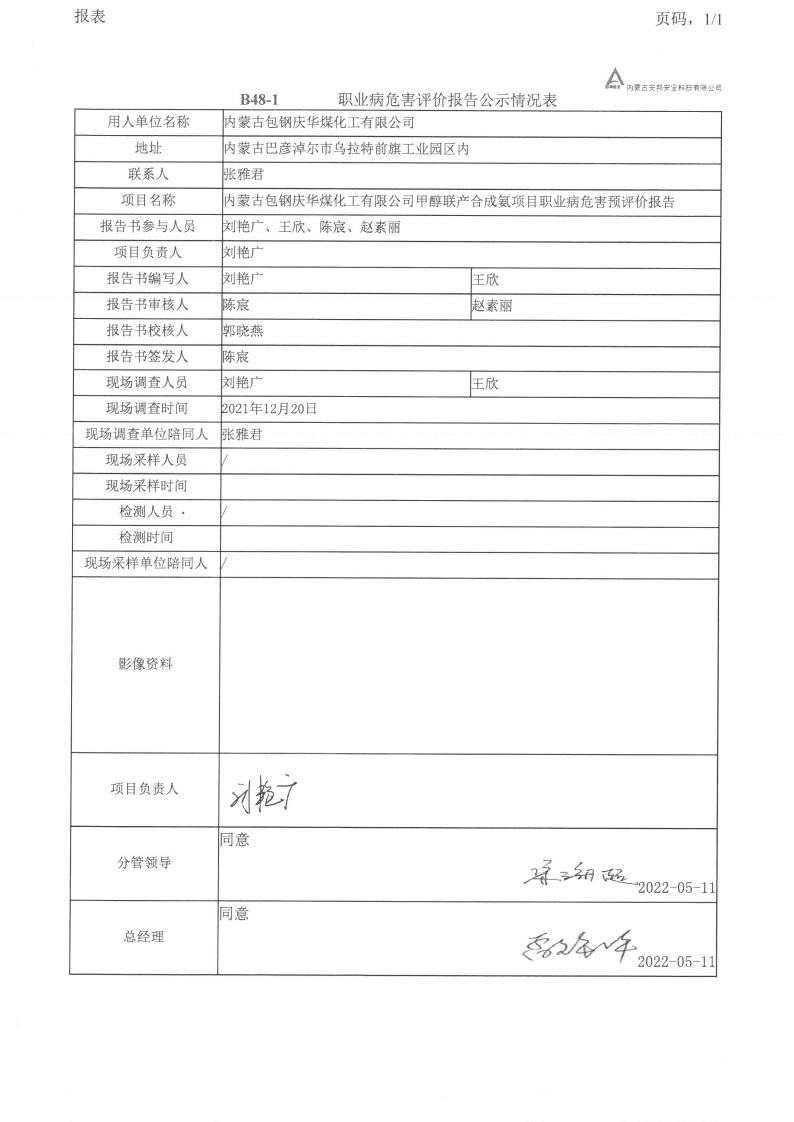 报表
页码，1/1
内蒙古安邦安全科技有限公司
B48-1 职业病危害评价报告公示情况表
用人单位名称 内蒙古包钢庆华煤化工有限公司
地址 内蒙古巴彦淖尔市乌拉特前旗工业园区内
联系人 张雅君
项目名称 内蒙古包钢庆华煤化工有限公司甲醇联产合成氨项目职业病危害预评价报告
报告书参与人员 刘艳广、王欣、陈宸、赵素丽
项目负责人 刘艳广
报告书编写人 刘艳广 王欣
报告书审核人 陈宸 赵素丽
报告书校核人 郭晓燕
报告书签发人 陈宸
现场调查人员 刘艳广 王欣
现场调查时间 2021年12月20日
现场调查单位陪同人 张雅君
现场采样人员 /
现场采样时间
检测人员 /
检测时间
现场采样单位陪同人 /
影像资料
项目负责人 刘艳广
同意
分管领导
2022-05-11
同意
总经理
2022-05-11